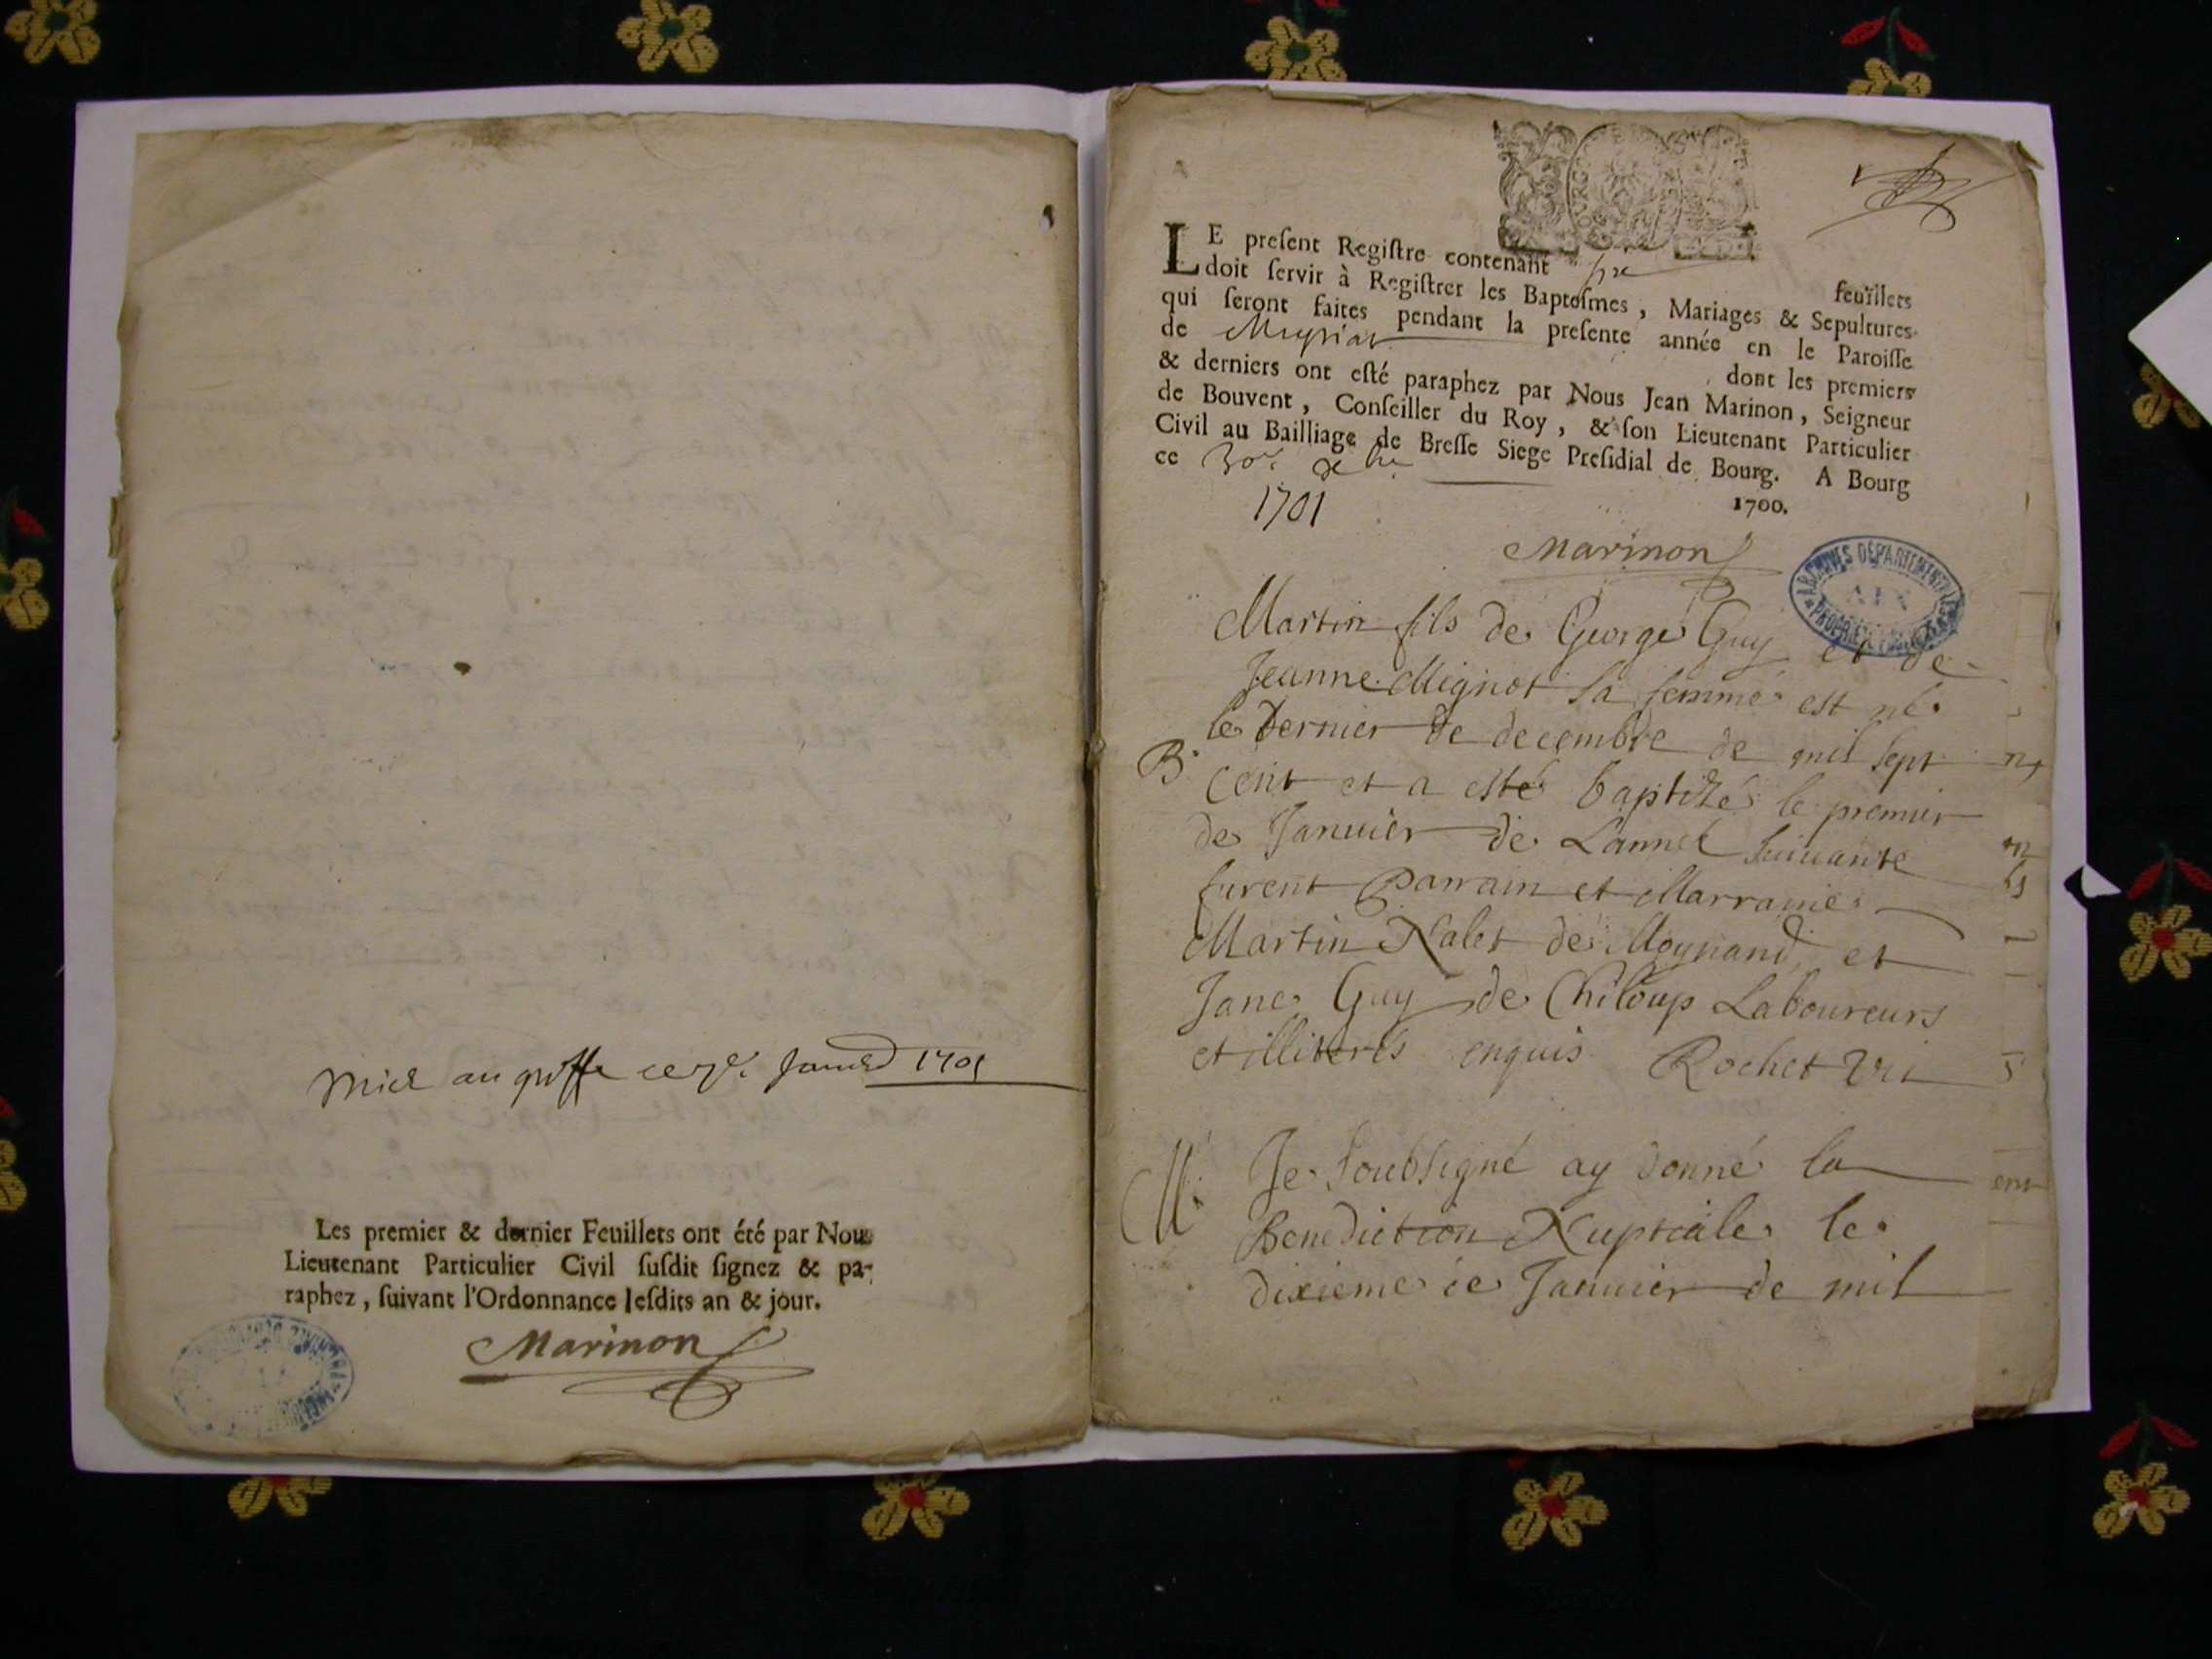 Mise au greffe ce Janvier 1701
Les premier & dernier Feuillets ont été par Nous
Lieutenant Particulier Civil ſuſdit ſignez & pa-
raphez, ſuivant l'Ordonnance leſdits an & jour.
Marinon
LE preſent Regiſtre contenant six feuillets
doit ſervir à Regiſtrer les Baptoſmes, Mariages & Sepultures
qui ſeront faites pendant la preſente année en le Paroiſſe
de Meyriat dont les premiers
& derniers ont eſté paraphez par Nous Jean Marinon, Seigneur
de Bouvent, Conſeiller du Roy, & ſon Lieutenant Particulier
Civil au Bailliage de Breſſe Siege Preſidial de Bourg. A Bourg
ce 30e xbre 1700.
1701
Marinon
ARCHIVES DÉPARTEMENTALES
AIN
Martin fils de George Guy et de
Jeanne Mignot sa femme est né
le dernier de decembre de mil sept
B. cent et a esté baptizé le premier
de Januier de Lannee suiuante
furent Parrain et Marraine
Martin Nalet de Moynand et
Jane Guy de Chiloup Laboureurs
et illiterés enquis Rochet Vri
M. Je soubsigné ay donné la
Benediction Nuptiale le
dixieme de Januier de mil